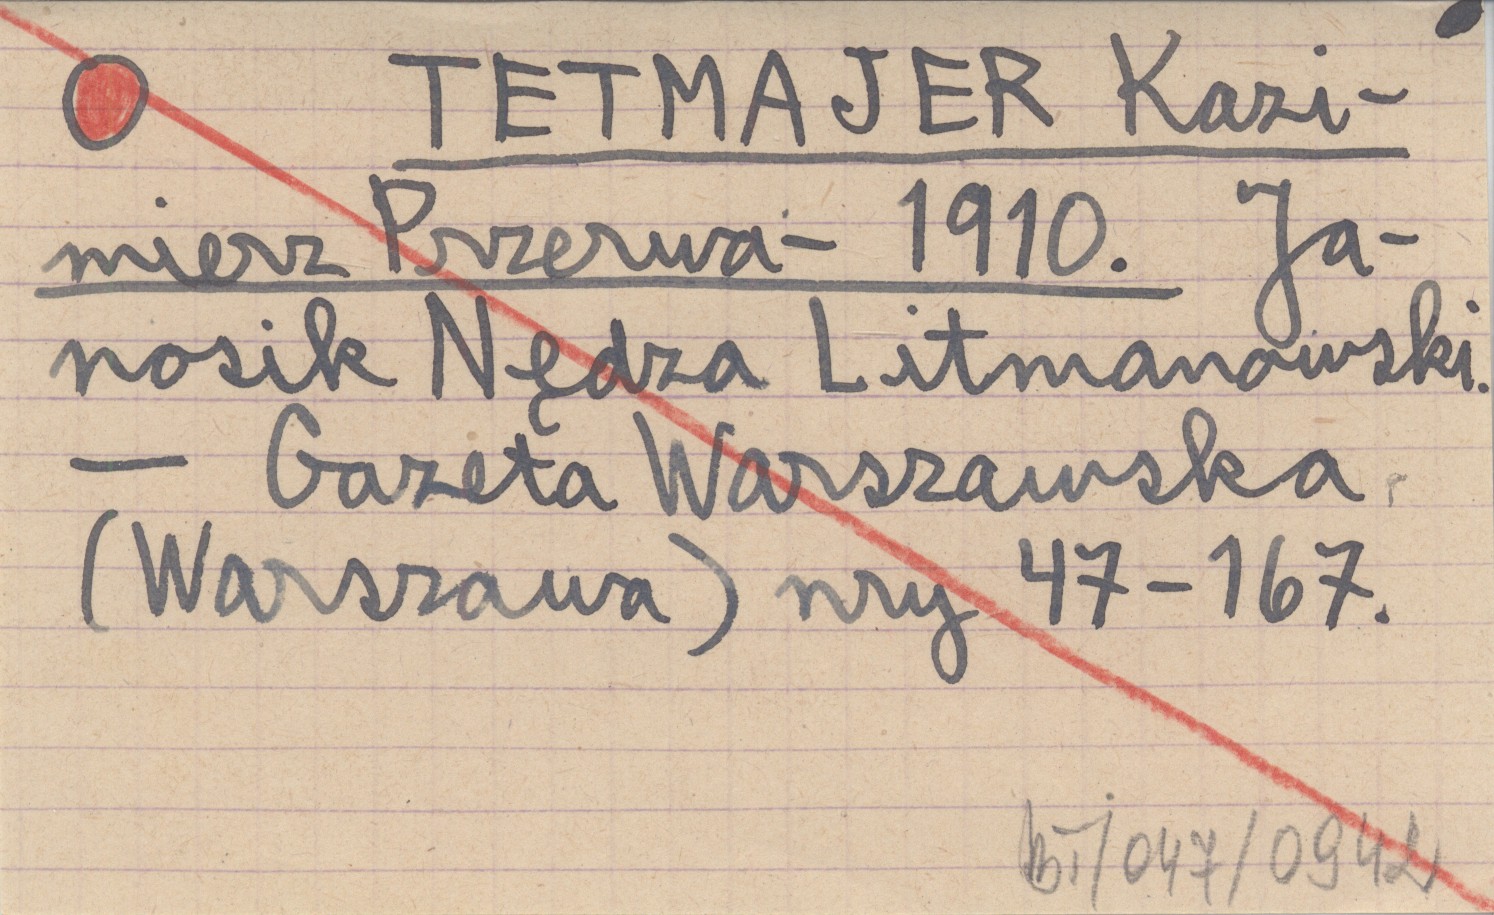 TETMAJER Kazi-
mierz Przerwa- 1910. Ja-
nosik Nędza Litmanowski.
— Gazeta Warszawska
(Warszawa) nry 47-167.
/047/0942